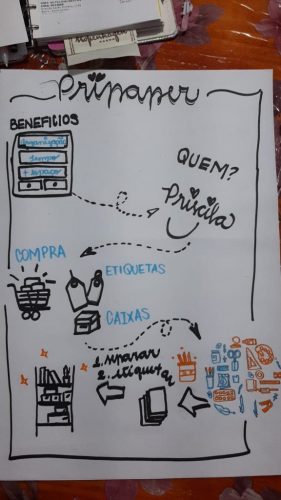 Pripaper
BENEFICIOS
organização
tempo
+ espaço
QUEM?
Priscila
COMPRA
ETIQUETAS
CAIXAS
1. separar
2. etiquetar